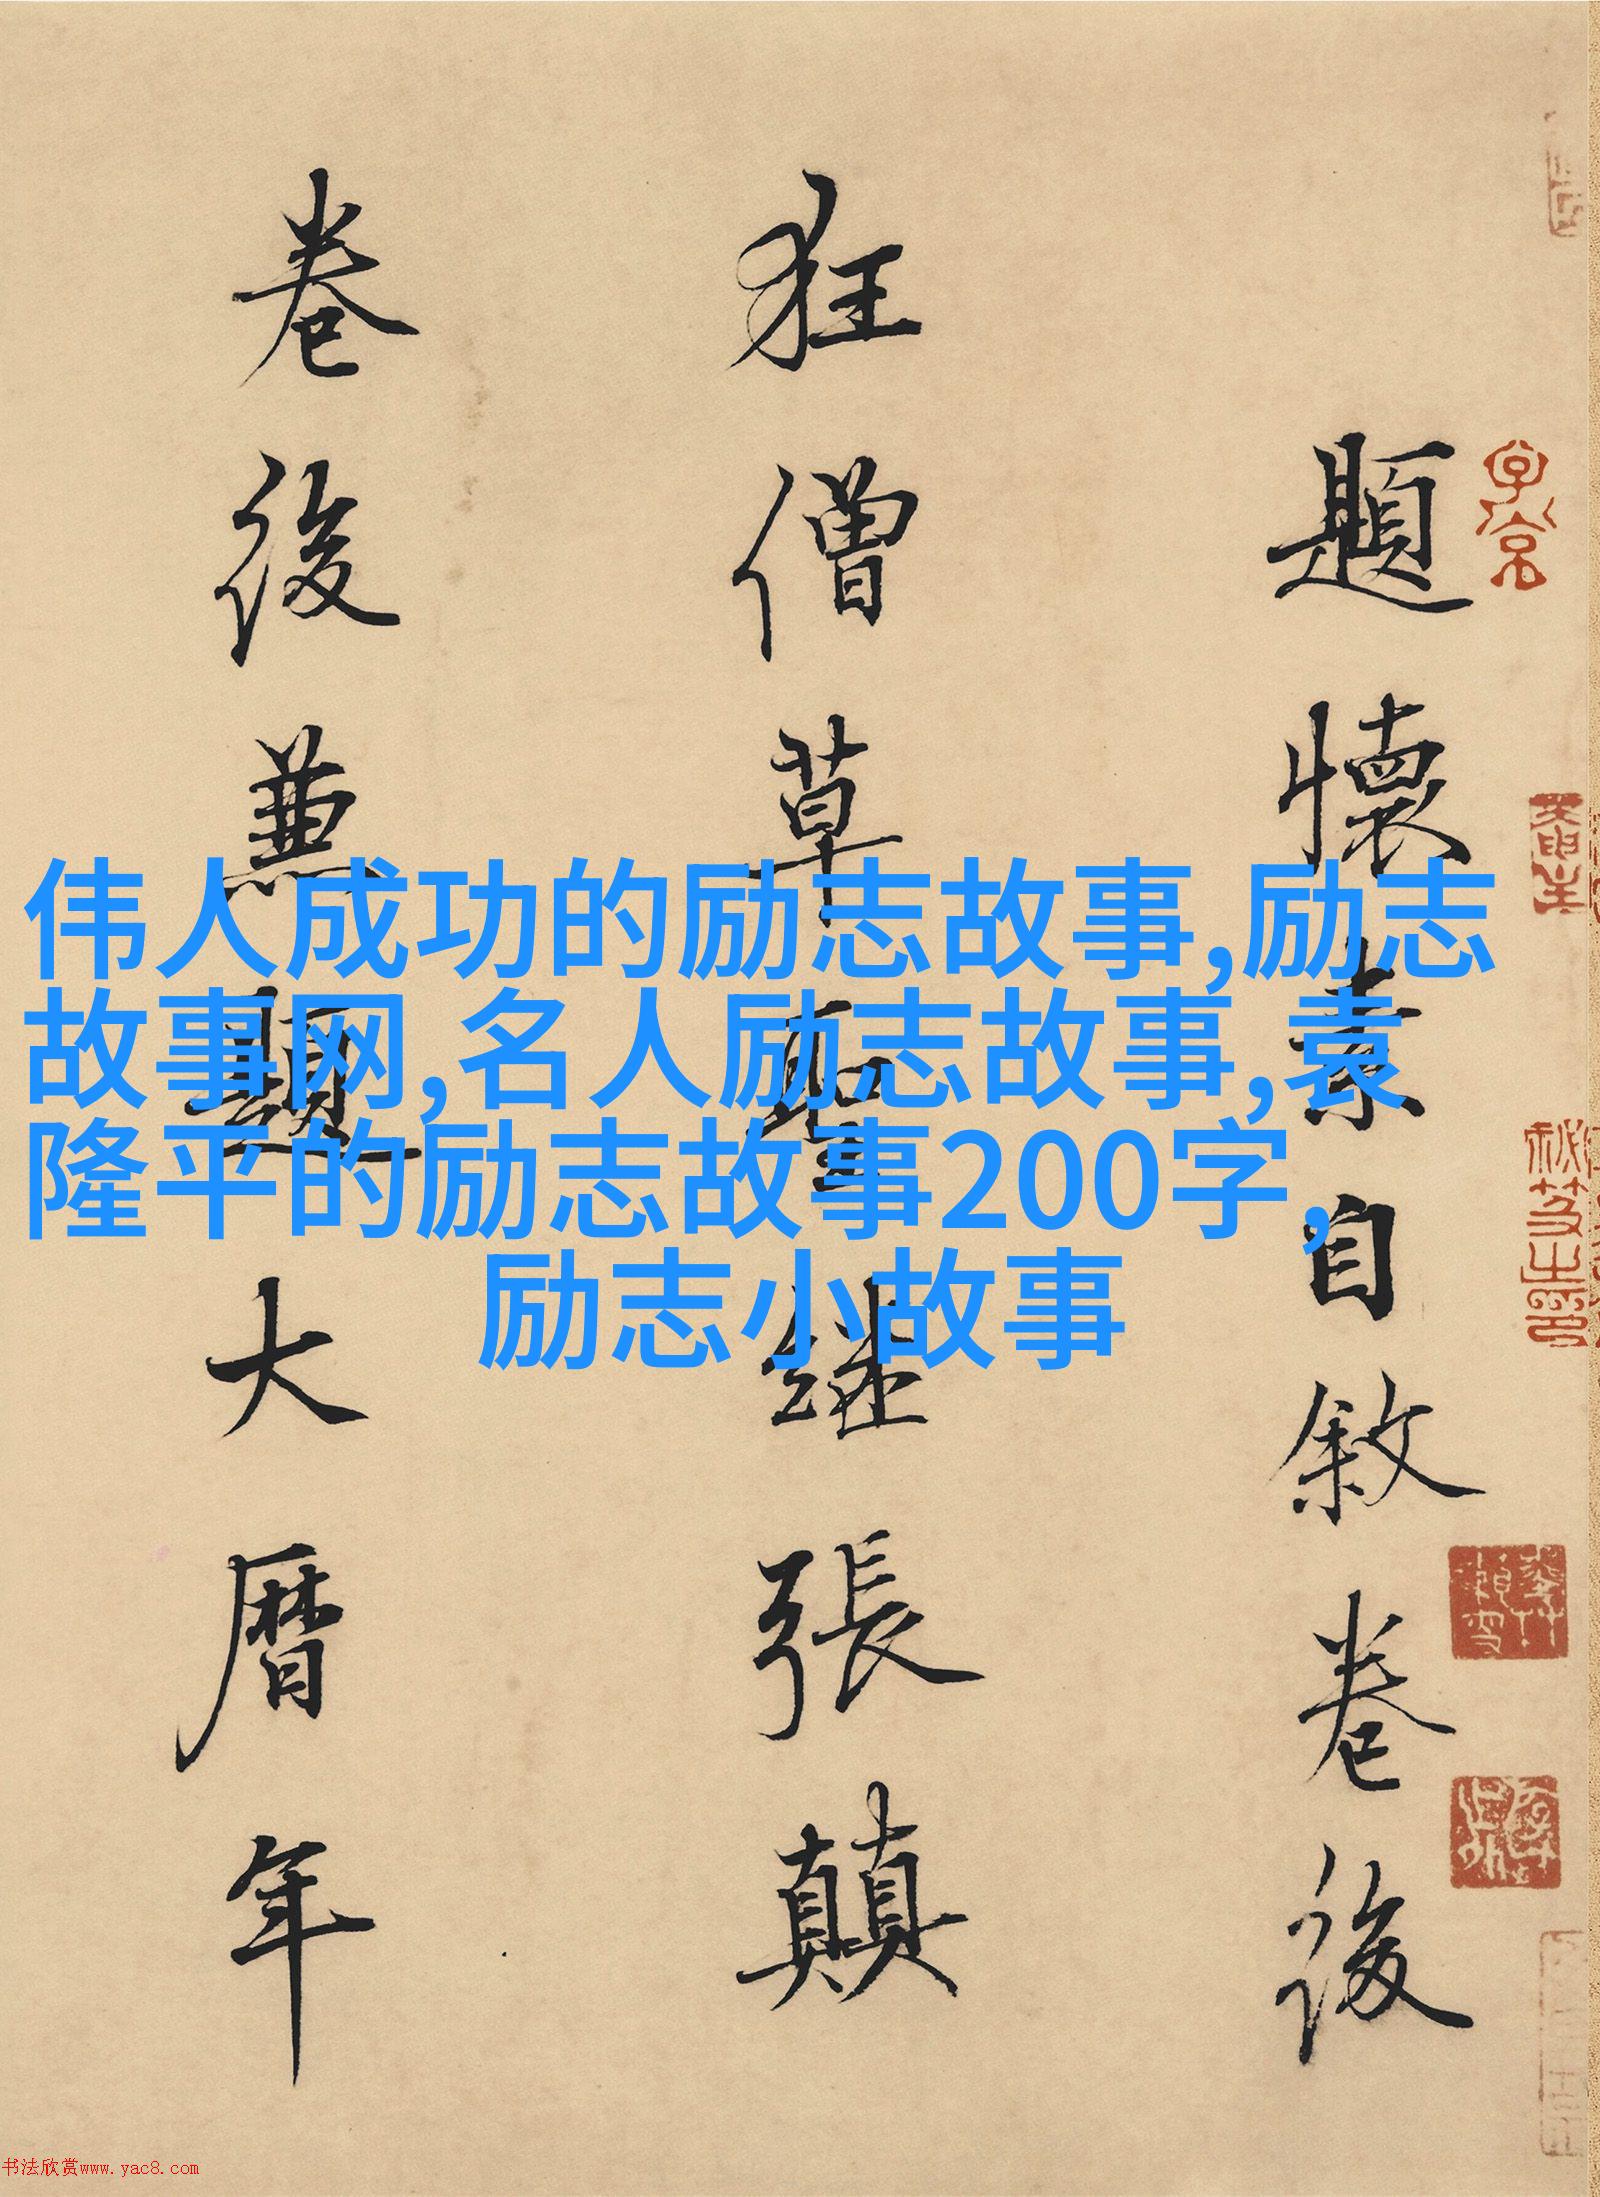 題懷素自敘卷後
狂僧草聖继張顛
卷後兼題大曆年
伟人成功的励志故事,励志
故事网,名人励志故事,袁
隆平的励志故事200字,
励志小故事
书法欣赏www.yac8.com